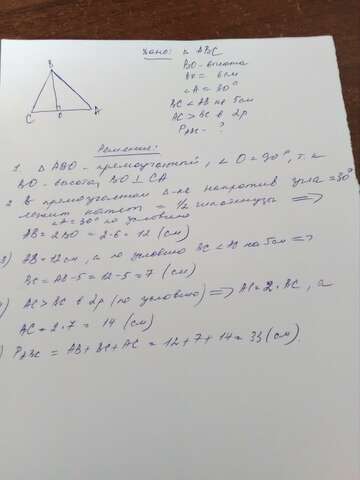 Дано: △ ABC
BO - высота
BO = 6 см
∠A = 30°
BC < AB на 5см
AC > BC в 2р
P△ABC - ?
B
C
O
A
Решение:
1. △ ABO - прямоугольный, ∠O = 90°, т.к
BO - высота, BO ⊥ CA
2. В прямоугольном △-ке напротив угла = 30°
лежит катет = 1/2 гипотенузы ⟹
∠A = 30° по условию
AB = 2BO = 2·6 = 12 (см)
3) AB = 12см, а по условию BC < AB на 5см ⟹
BC = AB - 5 = 12 - 5 = 7 (см)
) AC > BC в 2р (по условию) ⟹ AC = 2·BC, а
AC = 2·7 = 14 (см)
) P△ABC = AB + BC + AC = 12 + 7 + 14 = 33 (см).